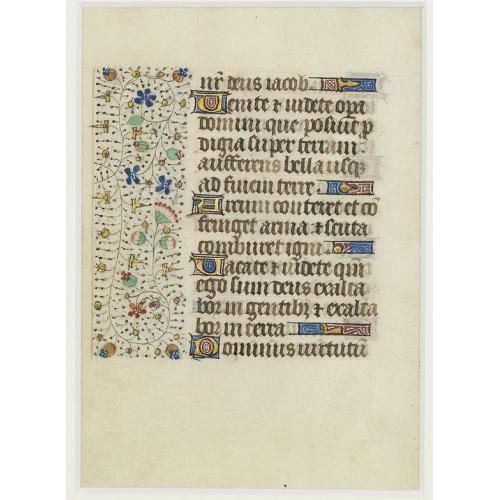 nr̄ deus iacob
Uenite & uidete opa
domini que posuit p
digia super terram
aufferens bella usq
ad finem terre
Arcum conteret et cō
fringet arma & scuta
comburet igni
Uacate & uidete qm̄
ego sum deus exalta
bor in gentibꝫ & exalta
bor in terra
Dominus uirtutū